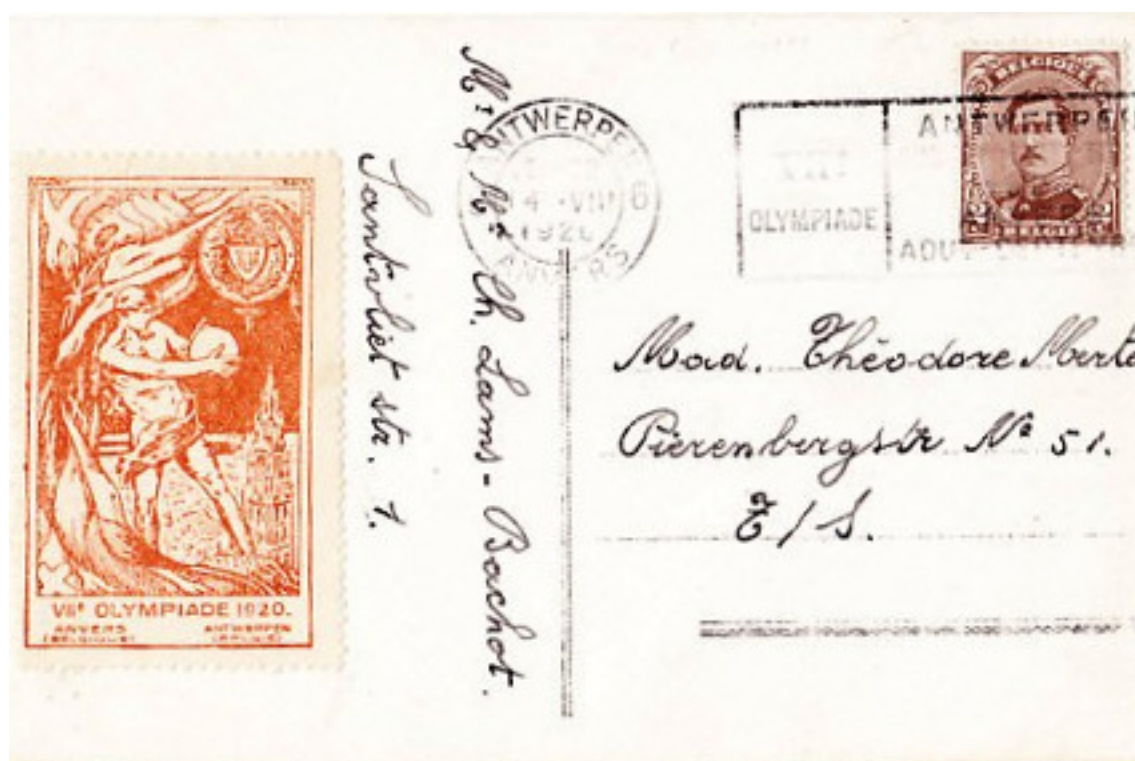 VIIe OLYMPIADE 1920.
ANVERS
(BELGIQUE)
ANTWERPEN
(BELGIE)
Santvliet str. 7.
Mr & Me Ch. Lams - Bachot.
ANTWERPEN 6
VIII
1920
ANVERS
VII
OLYMPIADE
ANTWERPE
AOU
BELGIQUE
BELGIE
Mad. Théodore
No 51.